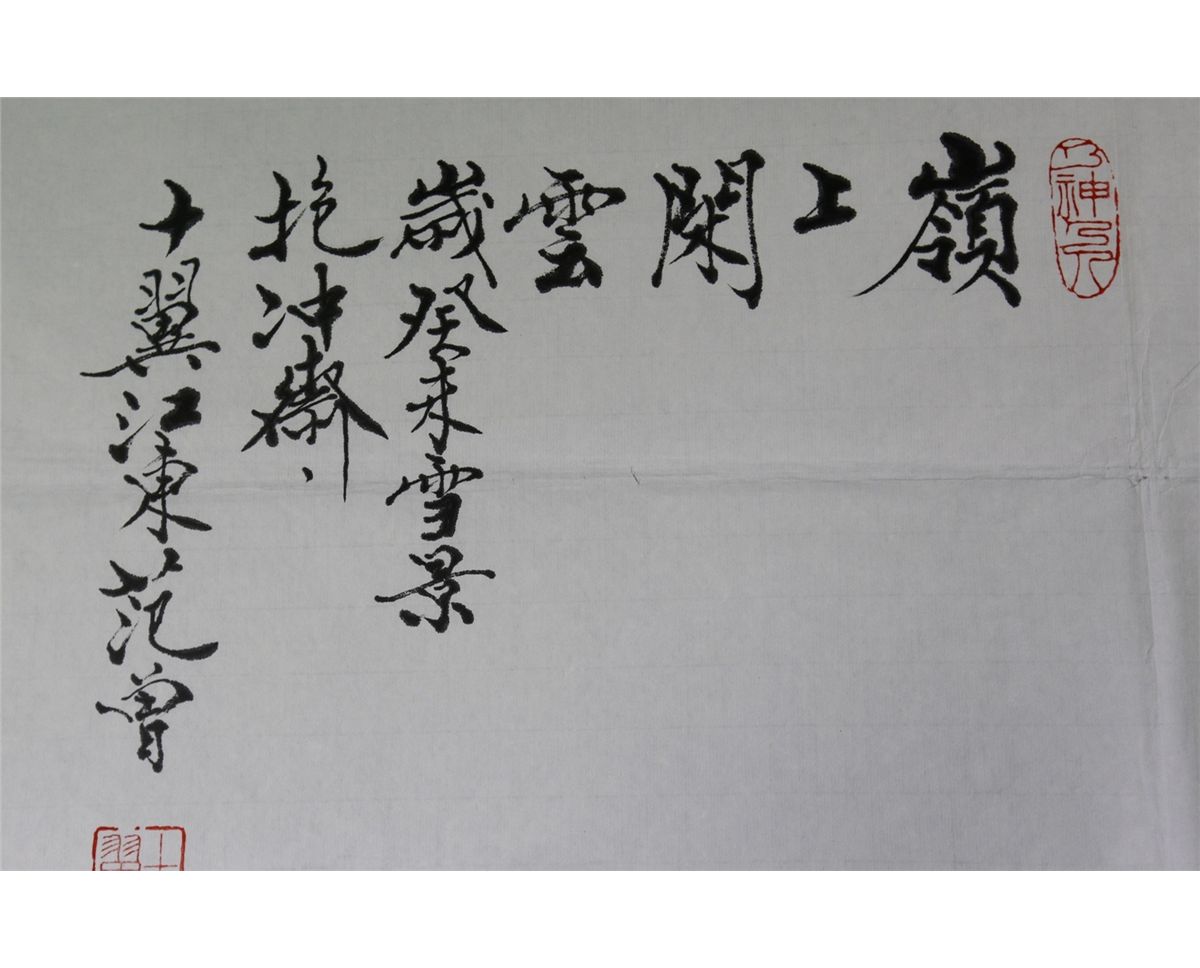 嶺上閑雲
歲癸未雪景
抱冲齋
十翼江東范曾